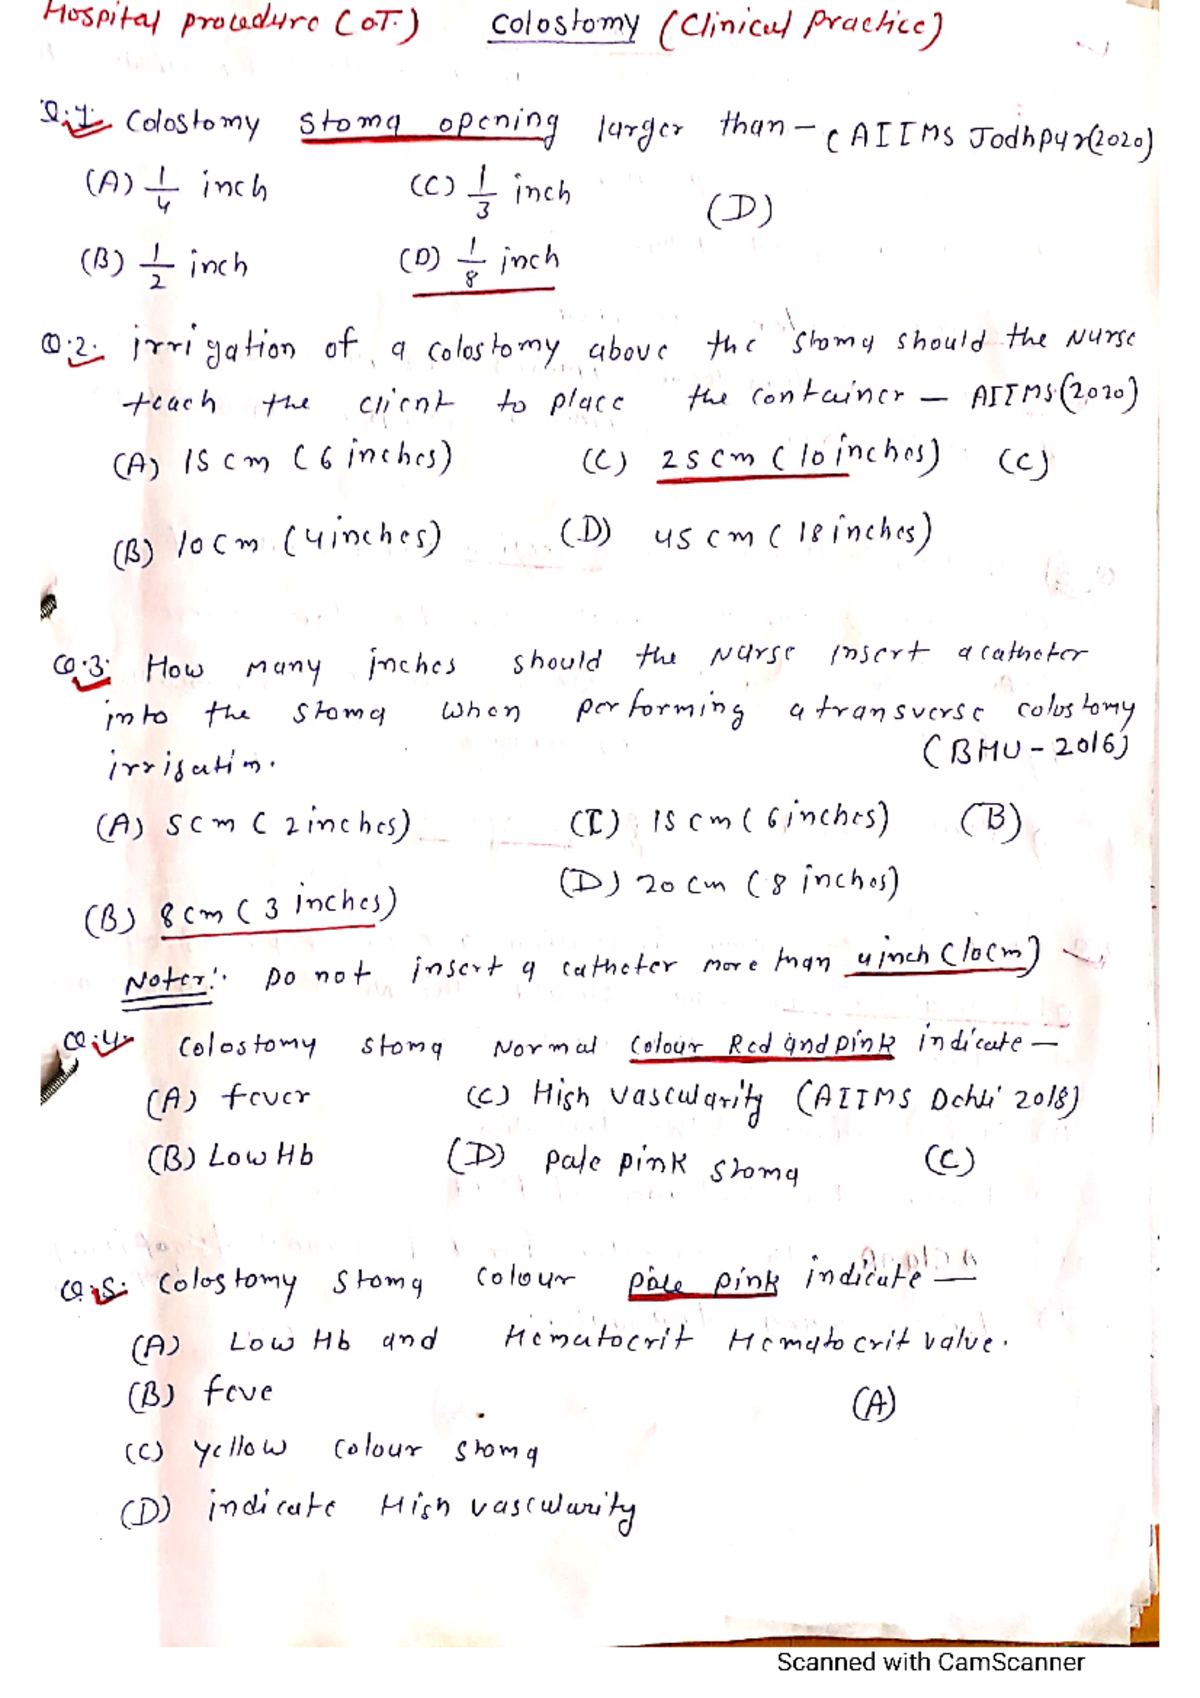 Hospital procedure (OT.) Colostomy (Clinical Practice)
Q.1. Colostomy stoma opening larger than - (AIIMS Jodhpur(2020)
(A) 1/4 inch (C) 1/3 inch (D)
(B) 1/2 inch (D) 1/8 inch
Q.2. irrigation of a colostomy above the stoma should the Nurse
teach the client to place the container - AIIMS(2020)
(A) 15 cm (6 inches) (C) 25 cm (10 inches) (C)
(B) 10 cm (4 inches) (D) 45 cm (18 inches)
Q.3. How many inches should the Nurse insert a catheter
into the stoma when performing a transverse colostomy
irrigation. (BHU - 2016)
(A) 5 cm (2 inches) (C) 15 cm (6 inches) (B)
(D) 20 cm (8 inches)
(B) 8 cm (3 inches)
Noter:. Do not insert a catheter more than 4 inch (10cm)
Q.4. Colostomy stoma Normal colour Red and pink indicate -
(A) fever (C) High vascularity (AIIMS Dehli 2018)
(B) Low Hb (D) pale pink stoma (C)
Q.5. Colostomy stoma colour pale pink indicate -
(A) Low Hb and Hematocrit Hematocrit value.
(B) feve (A)
(C) yellow colour stoma
(D) indicate High vascularity
Scanned with CamScanner